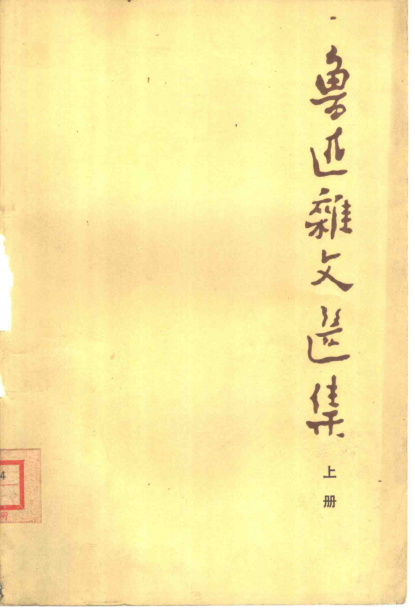 魯迅雜文選集
上册
4